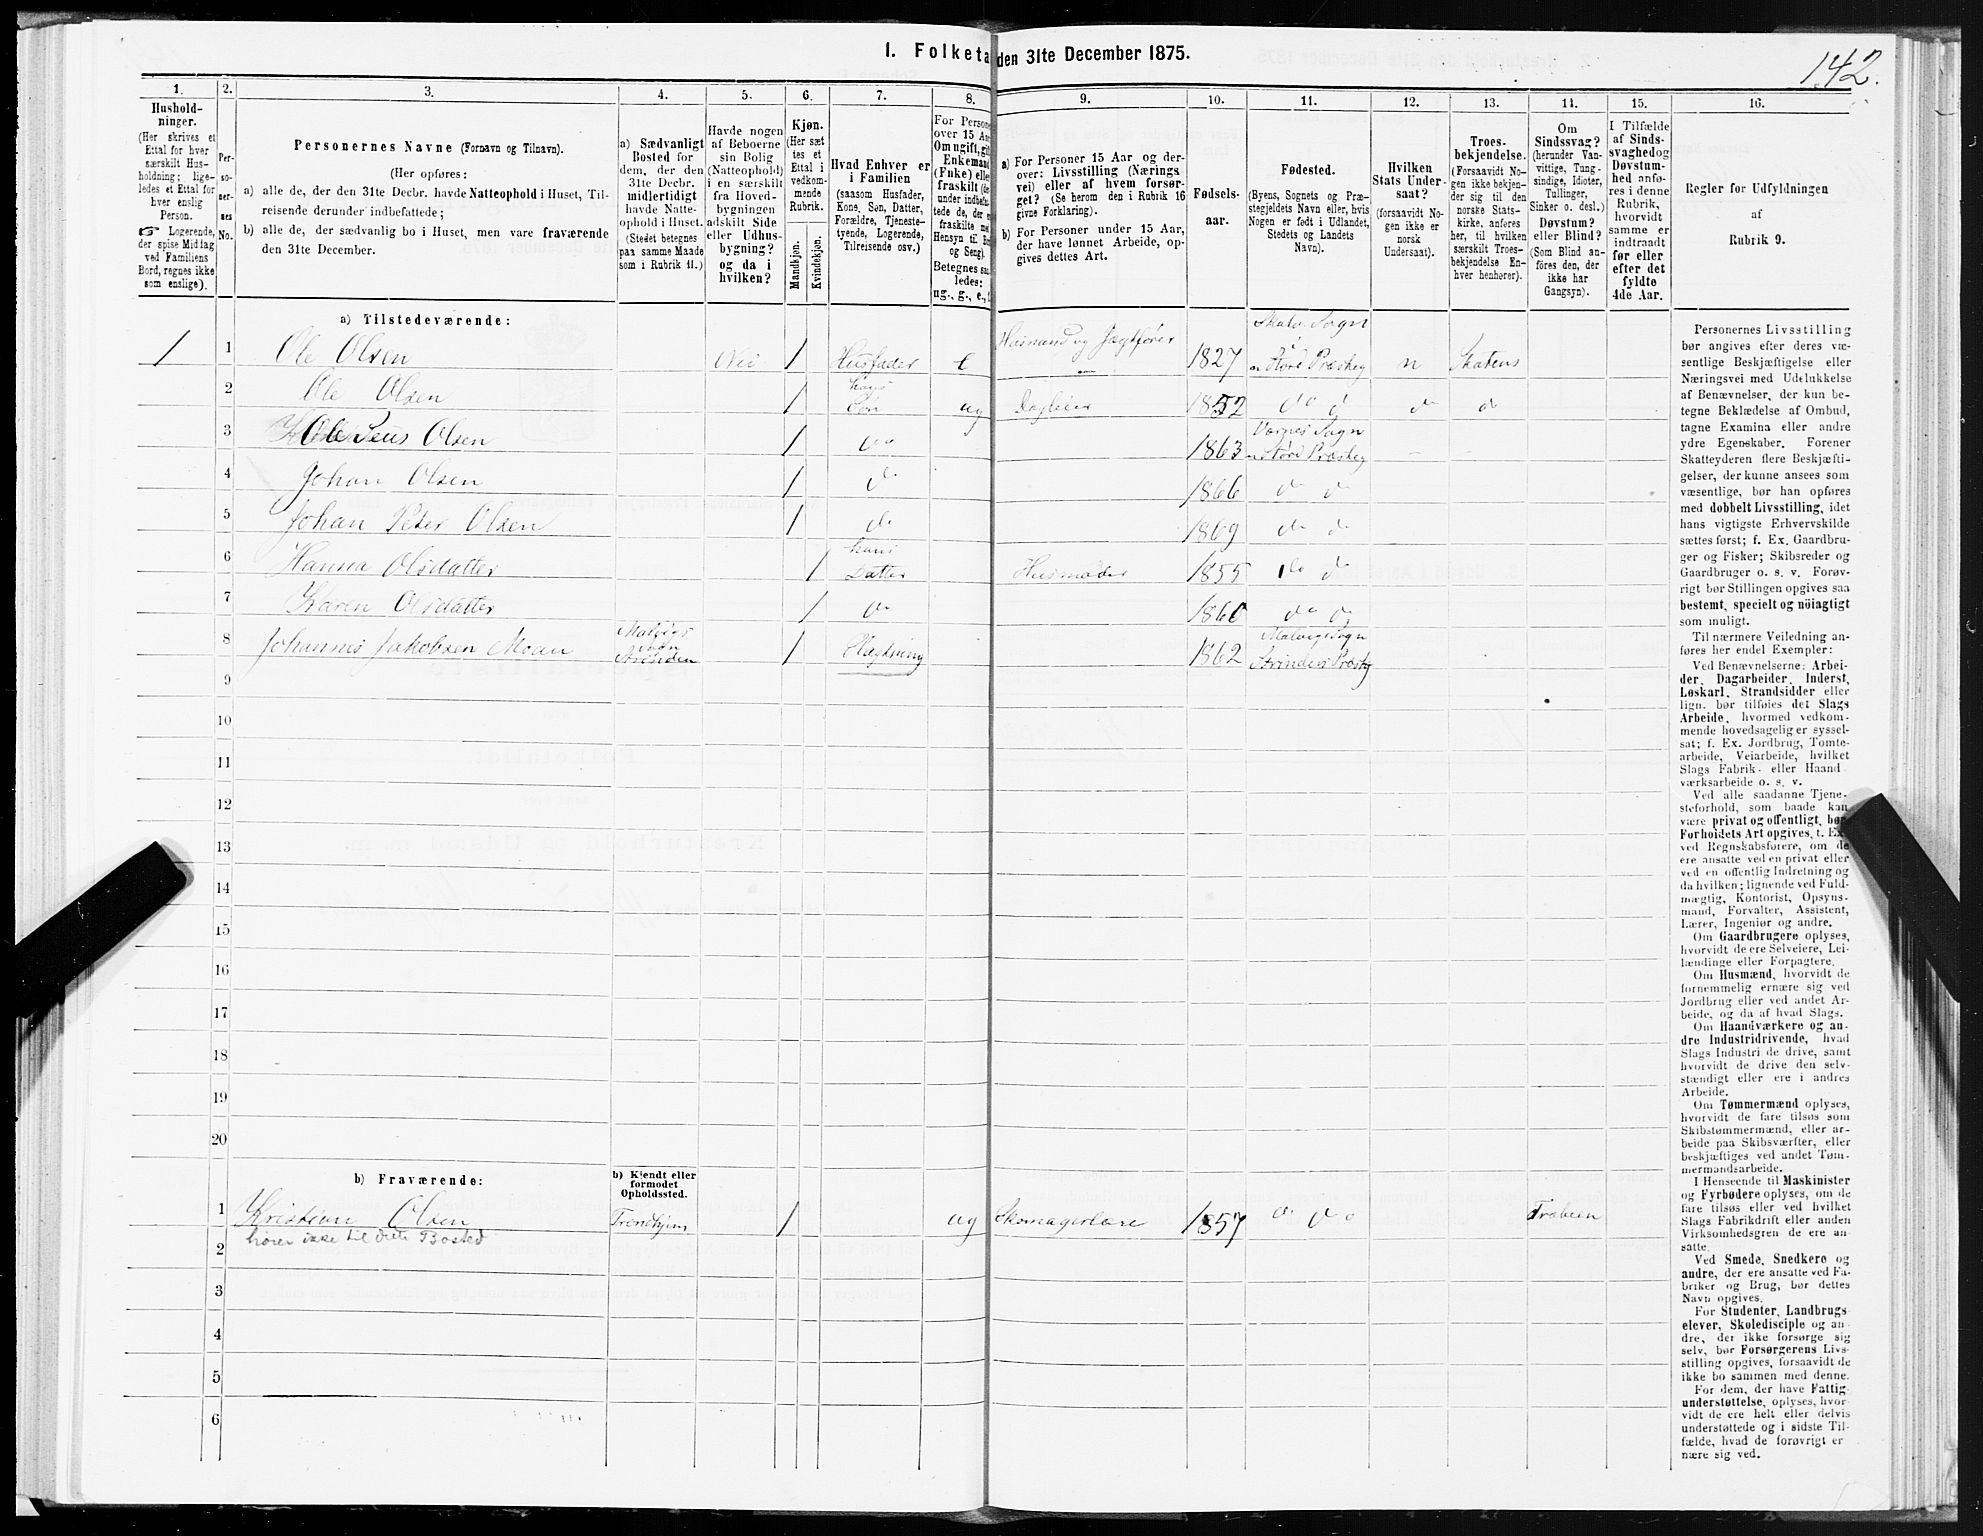 I. Folketa den 31te December 1875.
142.
1. 2. 3. 4. 5. 6. 7. 8. 9. 10. 11. 12. 13. 14. 15. 16.
Hushold-
ninger.
(Her skrives et
Ettal for hver
særskilt Hus-
holdning; lige-
ledes et Ettal for
hver enslig
Person.
☞ Logerende,
der spise Middag
ved Familiens
Bord, regnes ikke
som enslige).
Per-
so-
ner-
nes
No.
Personernes Navne (Fornavn og Tilnavn).
(Her opføres:
a) alle de, der den 31te Decbr. havde Natteophold i Huset, Til-
reisende derunder indbefattede;
b) alle de, der sædvanlig bo i Huset, men vare fraværende
den 31te December.
a) Sædvanligt
Bosted for
dem, der den
31te Decbr.
midlertidigt
havde Natte-
ophold i Huset.
(Stedet betegnes
paa samme Maade
som i Rubrik 11.)
Havde nogen
af Beboerne
sin Bolig
(Natteophold)
i en særskilt
fra Hoved-
bygningen
adskilt Side
eller Udhus-
bygning?
og da i
hvilken?
Kjøn.
(Her sæt
tes et
Ettal i
vedkom-
mende
Rubrik.
Mandkjøn.
Kvindekjøn.
Hvad Enhver er
i Familien
(saasom Husfader,
Kone, Søn, Datter,
Forældre, Tjeneste-
tyende, Logerende,
Tilreisende osv.)
For Persone
over 15 Aa
Om ugift, gif
Enkemand
(Enke) elle
fraskilt (de
under indbefat
tede de, der e
fraskilte me
Hensyn til Bo
og Seng).
Betegnes saa
ledes:
ug., g., e.,
a) For Personer 15 Aar og der-
over: Livsstilling (Nærings
vei) eller af hvem forsør-
get? (Se herom den i Rubrik 16
givne Forklaring).
b) For Personer under 15 Aar,
der have lønnet Arbeide, op-
gives dettes Art.
Fødsels-
aar.
Fødested.
(Byens, Sognets og Præ-
stegjeldets Navn eller, hvis
Nogen er født i Udlandet,
Stedets og Landets
Navn).
Hvilken
Stats Under-
saat?
(forsaavidt No-
gen ikke er
norsk
Undersaat).
Troes-
bekjendelse.
(Forsaavidt No-
gen ikke bekjen-
der sig til den
norske Stats-
kirke, anføres
her, til hvilken
særskilt Troes-
bekjendelse En-
hver henhører).
Om
Sindssvag?
(herunder Van-
vittige, Tung-
sindige, Idioter,
Tullinger,
Sinker o. desl.)
Døvstum?
eller Blind?
(Som Blind an-
føres den, der
ikke har
Gangsyn).
I Tilfælde
af Sinds-
svaghed og
Døvstum-
hed anfø-
res i denne
Rubrik,
hvorvidt
samme er
indtraadt
før eller
efter det
fyldte
4de Aar.
Regler for Udfyldningen
af
Rubrik 9.
a) Tilstedeværende:
1 1 Ole Olsen Nei 1 Husfader e Husmand og Jægtfører 1827 Sogn i Præsteg n Statens
2 Ole Olsen 1 hans Søn ug 1852 do d do d
3 Olsen 1 do 1863 Sogn Præsteg
4 Johan Olsen 1 do 1866 do do
5 Johan Peter Olsen 1 do 1869 do do
6 Hanna Olsdatter 1 hans Datter Husmoder 1855 do d
7 Karen Olsdatter 1 do 1860 do do
8 Johannes Jakobsen Moan Malvigs Sogn Strinden 1 Slægtning 1862 Malvigs Sogn Strindens Præsteg
9
10
11
12
13
14
15
16
17
18
19
20
b) Fraværende:
b) Kjendt eller
formodet
Opholdssted.
1 Kristian Olsen Trondhjem 1 ug Skomagerlære 1857 do do Træbeen
hører ikke til dette Bosted
2
3
4
5
6
Personernes Livsstilling
bør angives efter deres væ-
sentlige Beskjæftigelse eller
Næringsvei med Udelukkelse
af Benævnelser, der kun be-
tegne Beklædelse af Ombud,
tagne Examina eller andre
ydre Egenskaber. Forener
Skatteyderen flere Beskjæfti-
gelser, der kunne ansees som
væsentlige, bør han opføres
med dobbelt Livsstilling, idet
hans vigtigste Erhvervskilde
sættes først; f. Ex. Gaardbru-
ger og Fisker; Skibsreder og
Gaardbruger o. s. v. Forøv-
rigt bør Stillingen opgives saa
bestemt, specielt og nøiagtigt
som muligt.
Til nærmere Veiledning an-
føres her endel Exempler:
Ved Benævnelserne: Arbei-
der, Dagarbeider, Inderst,
Løskarl, Strandsidder eller
lign. bør tilføies det Slags
Arbeide, hvormed vedkom-
mende hovedsagelig er syssel-
sat; f. Ex. Jordbrug, Tomte-
arbeide, Veiarbeide, hvilket
Slags Fabrik- eller Haand-
værksarbeide o. s. v.
Ved alle saadanne Tjene-
steforhold, som baade kan
være privat og offentligt, bør
Forholdets Art opgives, t. Ex.
ved Regnskabsførere, om de
ere ansatte ved en privat eller
ved en offentlig Indretning og
da hvilken; lignende ved Fuld-
mægtig, Kontorist, Opsyns-
mand, Forvalter, Assistent,
Lærer, Ingeniør og andre.
Om Gaardbrugere oplyses,
hvorvidt de ere Selveiere, Lei-
lændinge eller Forpagtere.
Om Husmænd, hvorvidt de
fornemmelig ernære sig ved
Jordbrug eller ved andet Ar-
beide, og da af hvad Slags.
Om Haandværkere og an-
dre Industridrivende, hvad
Slags Industri de drive, samt
hvorvidt de drive den selv-
stændigt eller ere i andres
Arbeide.
Om Tømmermænd oplyses,
hvorvidt de fare tilsøs som
Skibstømmermænd, eller ar-
beide paa Skibsværfter, eller
beskjæftiges ved andet Tøm-
mermandsarbeide.
I Henseende til Maskinister
og Fyrbødere oplyses, om de
fare tilsøs eller ved hvilket
Slags Fabrikdrift eller anden
Virksomhedsgren de ere an-
satte.
Ved Smede, Snedkere og
andre, der ere ansatte ved Fa-
briker og Brug, bør dettes
Navn opgives.
For Studenter, Landbrugs-
elever, Skoledisciple og an-
dre, der ikke forsørge sig
selv, bør Forsørgerens Livs-
stilling opgives, forsaavidt de
ikke bo sammen med denne.
For dem, der have Fattig-
understøttelse, oplyses, hvor-
vidt de ere helt eller delvis
understøttede og i sidste Til-
fælde, hvad de forøvrigt er
nære sig ved.